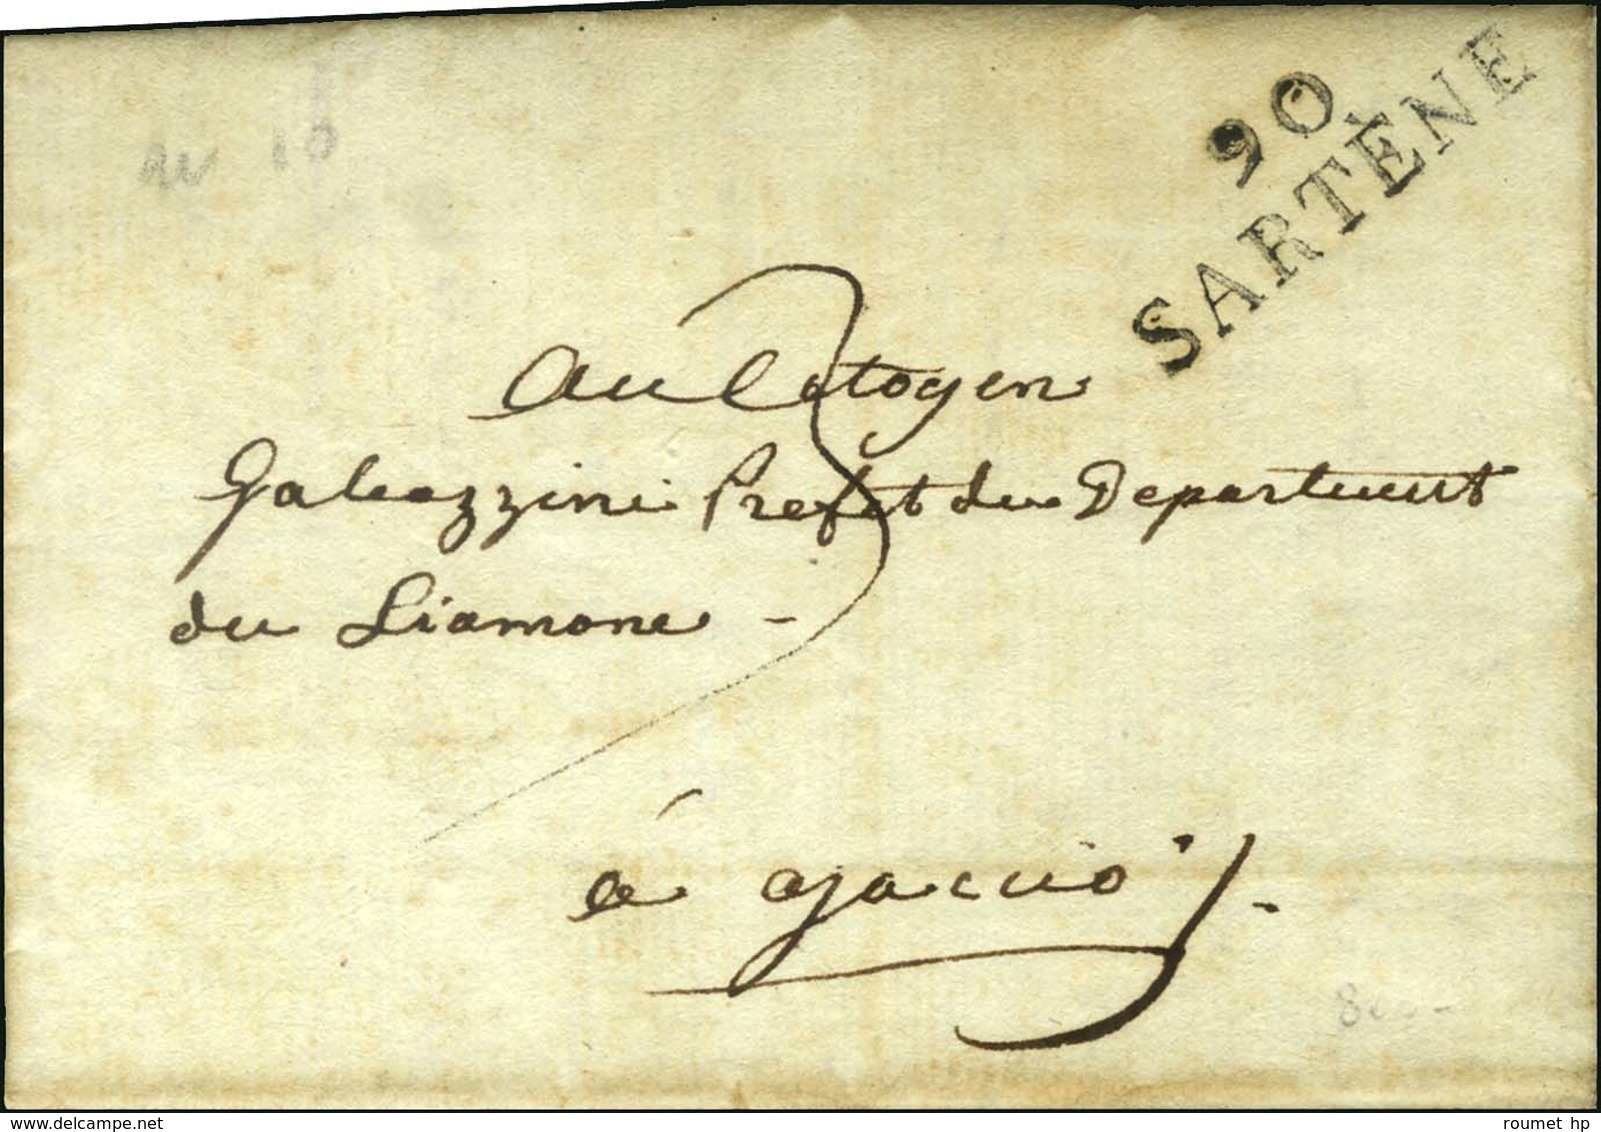 90
SARTÈNE
au 10
3
Au Citoyen
Galeazzini Prefet du Departement
du Liamone -
à ajaccio
delcampe.net
roumet hp